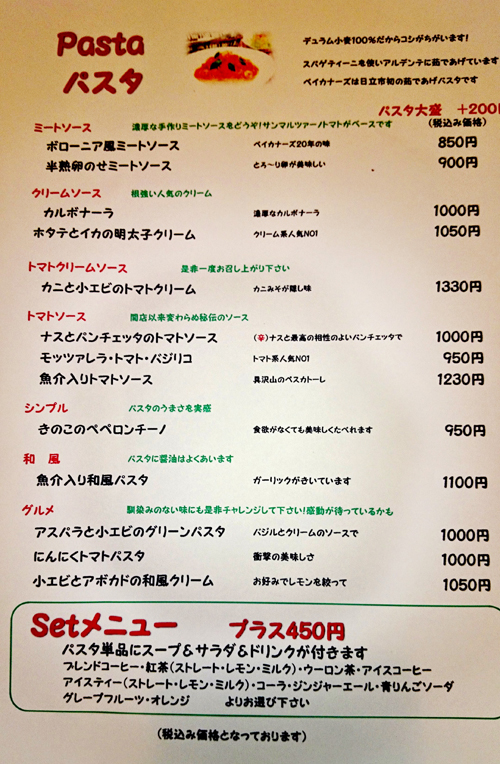 Pasta
パスタ
デュラム小麦100%だからコシがちがいます!
スパゲティーニを使いアルデンテに茹であげています
ベイカナーズは日立市初の茹であげパスタです
パスタ大盛 +200
ミートソース 濃厚な手作りミートソースをどうぞ!サンマルツァーノトマトがベースです (税込み価格)
ボローニア風ミートソース ベイカナーズ20年の味 850円
半熟卵のせミートソース とろ〜り卵が美味しい 900円
クリームソース 根強い人気のクリーム
カルボナーラ 濃厚なカルボナーラ 1000円
ホタテとイカの明太子クリーム クリーム系人気NO1 1050円
トマトクリームソース 是非一度お召し上がり下さい
カニと小エビのトマトクリーム カニみそが隠し味 1330円
トマトソース 開店以来変わらぬ秘伝のソース
ナスとパンチェッタのトマトソース (辛)ナスと最高の相性のよいパンチェッタで 1000円
モッツァレラ・トマト・バジリコ トマト系人気NO1 950円
魚介入りトマトソース 具沢山のペスカトーレ 1230円
シンプル パスタのうまさを実感
きのこのペペロンチーノ 食欲がなくても美味しくたべれます 950円
和 風 パスタに醤油はよくあいます
魚介入り和風パスタ ガーリックがきいています 1100円
グルメ 馴染みのない味にも是非チャレンジして下さい!感動が待っているかも
アスパラと小エビのグリーンパスタ バジルとクリームのソースで 1000円
にんにくトマトパスタ 衝撃の美味しさ 1000円
小エビとアボカドの和風クリーム お好みでレモンを絞って 1050円
Setメニュー プラス450円
パスタ単品にスープ&サラダ&ドリンクが付きます
ブレンドコーヒー・紅茶(ストレート・レモン・ミルク)・ウーロン茶・アイスコーヒー
アイスティー(ストレート・レモン・ミルク)・コーラ・ジンジャーエール・青りんごソーダ
グレープフルーツ・オレンジ よりお選び下さい
(税込み価格となっております)